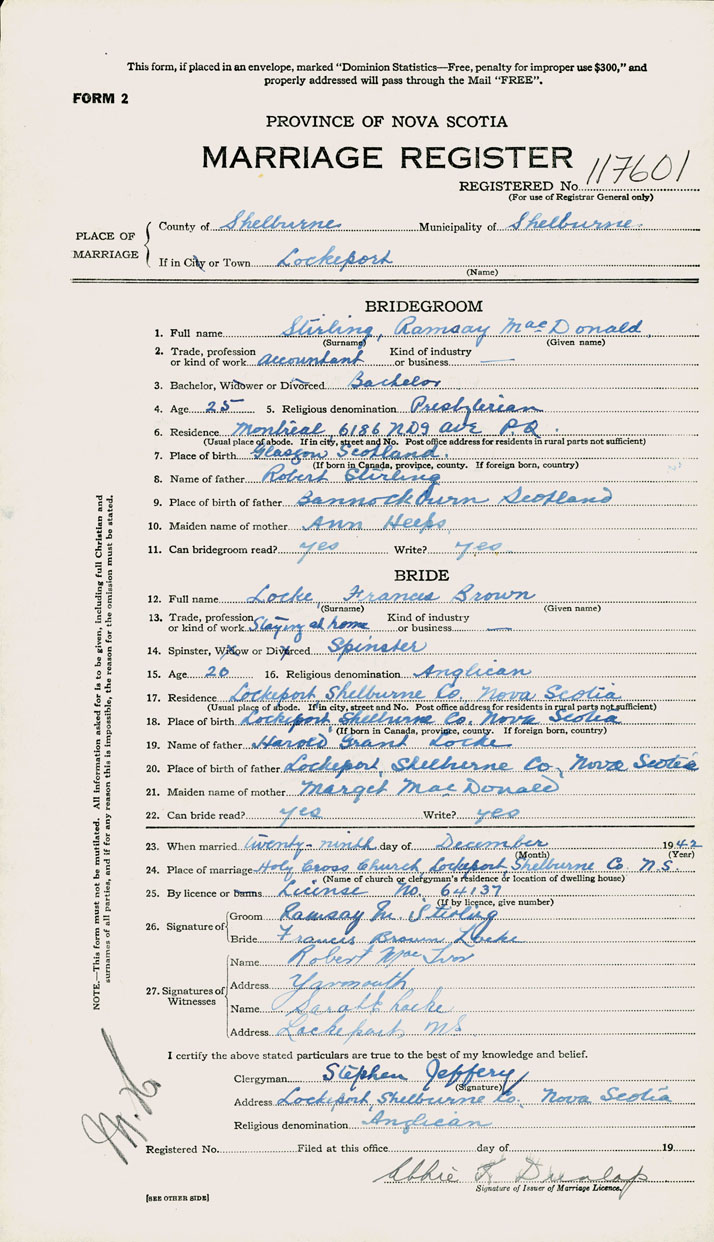 This form, if placed in an envelope, marked "Dominion Statistics—Free, penalty for improper use $300," and
properly addressed will pass through the Mail "FREE".
FORM 2
PROVINCE OF NOVA SCOTIA
MARRIAGE REGISTER
REGISTERED No. 117601
(For use of Registrar General only)
PLACE OF MARRIAGE
County of Shelburne Municipality of Shelburne.
If in City or Town Lockeport
(Name)
BRIDEGROOM
1. Full name Stirling, Ramsay MacDonald
(Surname) (Given name)
2. Trade, profession or kind of work accountant Kind of industry or business —
3. Bachelor, Widower or Divorced Bachelor
4. Age 25 5. Religious denomination Presbyterian
6. Residence Montreal, 6186 N.D.G ave P.Q.
(Usual place of abode. If in city, street and No. Post office address for residents in rural parts not sufficient)
7. Place of birth Glasgow Scotland.
(If born in Canada, province, county. If foreign born, country)
8. Name of father Robert Stirling
9. Place of birth of father Bannockburn Scotland
10. Maiden name of mother Ann Heeps
11. Can bridegroom read? yes Write? yes
BRIDE
12. Full name Locke, Francis Brown
(Surname) (Given name)
13. Trade, profession or kind of work Staying at home Kind of industry or business —
14. Spinster, Widow or Divorced Spinster
15. Age 20 16. Religious denomination Anglican
17. Residence Lockeport, Shelburne Co, Nova Scotia
(Usual place of abode. If in city, street and No. Post office address for residents in rural parts not sufficient)
18. Place of birth Lockeport Shelburne Co, Nova Scotia
(If born in Canada, province, county. If foreign born, country)
19. Name of father Harold Grant Locke
20. Place of birth of father Lockeport, Shelburne Co, Nova Scotia
21. Maiden name of mother Marget MacDonald
22. Can bride read? yes Write? yes
23. When married twenty-ninth day of December 1942
(Month) (Year)
24. Place of marriage Holy Cross Church, Lockeport, Shelburne Co. N.S
(Name of church or clergyman's residence or location of dwelling house)
25. By licence or banns License No. 64137
(If by licence, give number)
26. Signature of
Groom Ramsay M. Stirling
Bride Francis Brown Locke
27. Signatures of Witnesses
Name Robert MacIvor
Address Yarmouth
Name Sarah E Locke
Address Lockeport, NS
I certify the above stated particulars are true to the best of my knowledge and belief.
Clergyman Stephen Jeffery
(Signature)
Address Lockeport, Shelburne Co. Nova Scotia
Religious denomination Anglican
Registered No. Filed at this office day of 19
Abbie K Dunlap
Signature of Issuer of Marriage Licence.
[SEE OTHER SIDE]
NOTE.—This form must not be mutilated. All information asked for is to be given, including full Christian and
surnames of all parties, and if for any reason this is impossible, the reason for the omission must be stated.